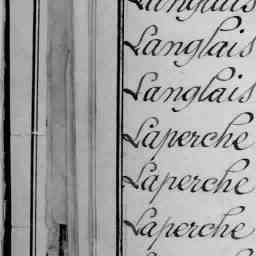 Langlais
Langlais
Langlais
Laperche
Laperche
Laperche